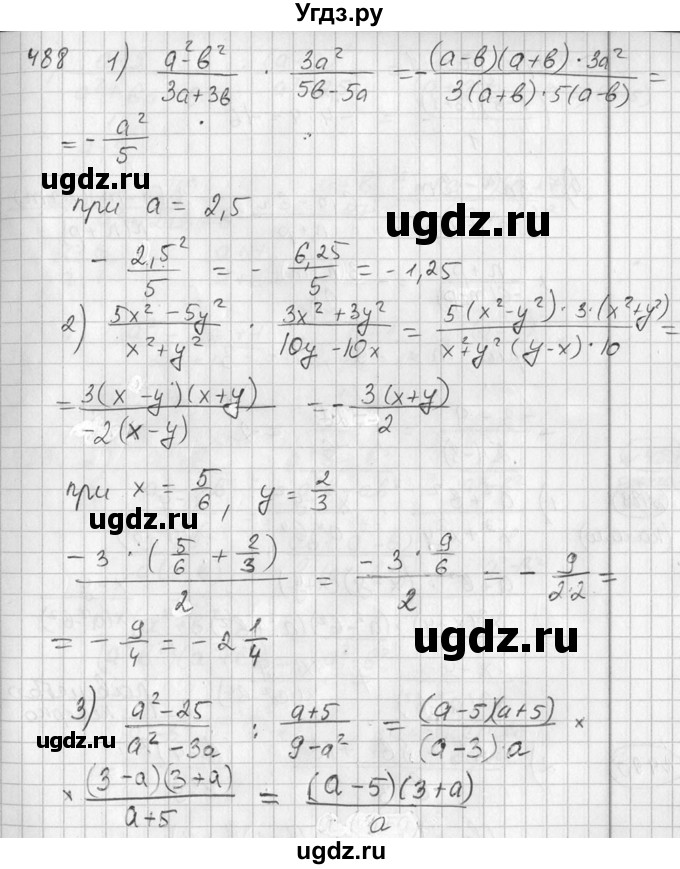 Угдз.ру
488 1) (a²-в²)/(3a+3в) · 3a²/(5в-5a) = -((a-в)(a+в)·3a²)/(3(a+в)·5(a-в)) =
= - a²/5
ugdz.ru
при a = 2,5
ugdz.ru
- 2,5²/5 = - 6,25/5 = -1,25
2) (5x²-5y²)/(x²+y²) · (3x²+3y²)/(10y-10x) = (5(x²-y²)·3·(x²+y²))/(x²+y²(y-x)·10) =
= (3(x-y)(x+y))/(-2(x-y)) = - (3(x+y))/2
при x = 5/6, y = 2/3
ugdz.ru
(-3·(5/6 + 2/3))/2 = (-3·9/6)/2 = - 9/(2·2) =
= - 9/4 = -2 1/4
ugdz.ru
3) (a²-25)/(a²-3a) : (a+5)/(9-a²) = ((a-5)(a+5))/((a-3)·a) ×
ugdz.ru
× ((3-a)(3+a))/(a+5) = ((a-5)(3+a))/a
ugdz.ru